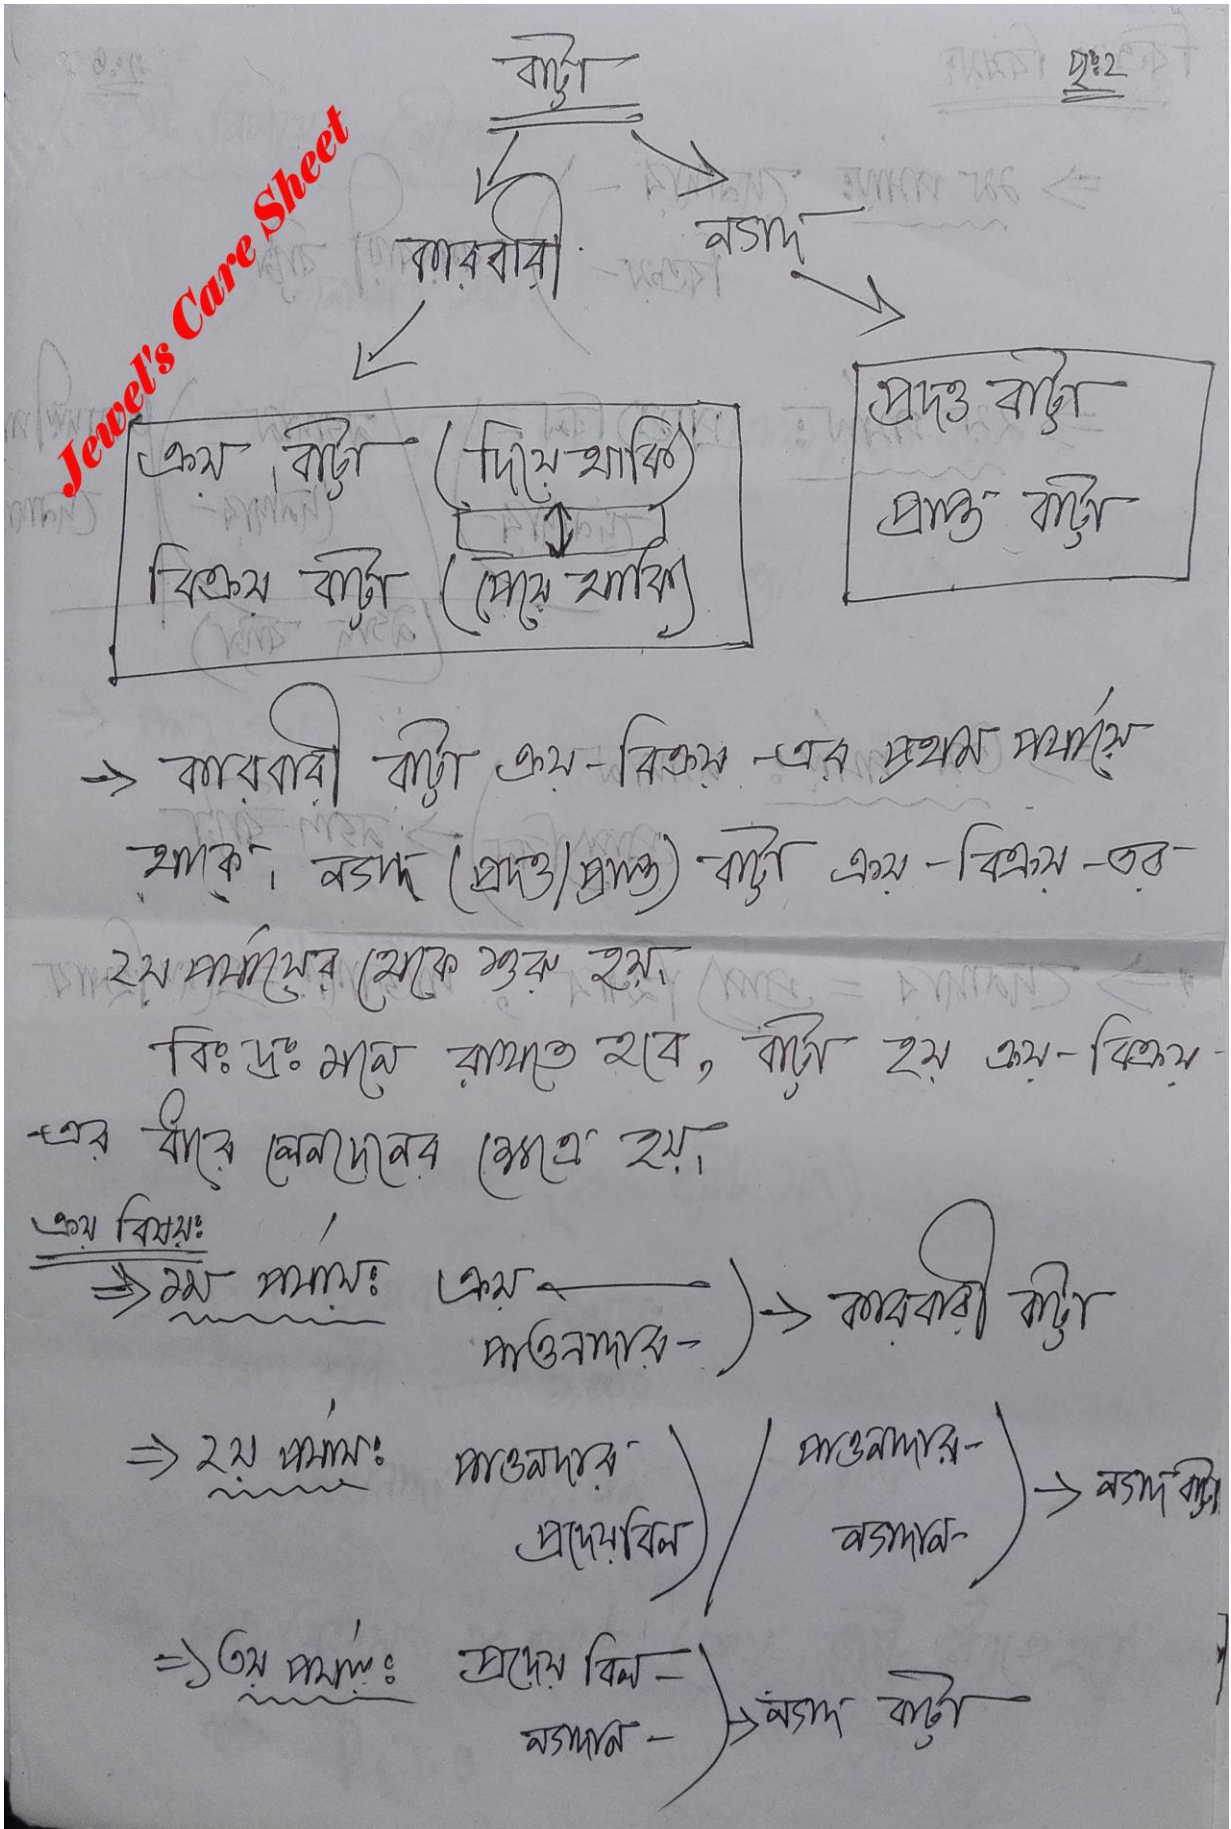 বাট্টা
পৃঃ২
Jewel's Care Sheet
কারবারী
নগদ
ক্রয় বাট্টা (দিয়ে থাকি)
বিক্রয় বাট্টা (পেয়ে থাকি)
প্রদত্ত বাট্টা
প্রাপ্ত বাট্টা
→ কারবারী বাট্টা ক্রয়-বিক্রয়-এর প্রথম পর্যায়ে
থাকে। নগদ (প্রদত্ত/প্রাপ্ত) বাট্টা ক্রয়-বিক্রয়-এর
২য় পর্যায়ের থেকে শুরু হয়।
বিঃদ্রঃ মনে রাখতে হবে, বাট্টা হয় ক্রয়-বিক্রয়-
-এর ধারে লেনদেনের ক্ষেত্রে হয়।
ক্রয় বিষয়ঃ
⇒ ১ম পর্যায়ঃ ক্রয় — → কারবারী বাট্টা
পাওনাদার-
⇒ ২য় পর্যায়ঃ পাওনাদার / পাওনাদার- → নগদ বাট্টা
প্রদেয়বিল নগদান-
⇒ ৩য় পর্যায়ঃ প্রদেয় বিল- → নগদ বাট্টা
নগদান-